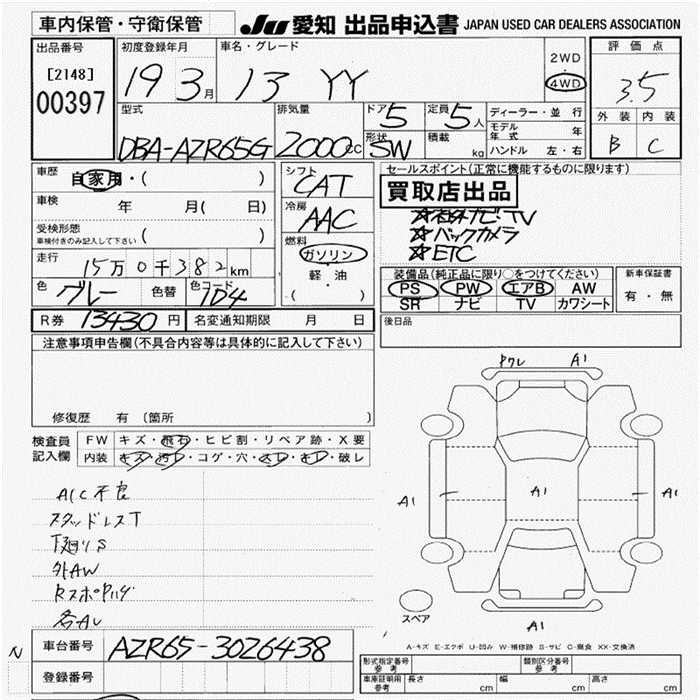 車内保管・守衛保管
JU 愛知 出品申込書 JAPAN USED CAR DEALERS ASSOCIATION
出品番号
[2148]
00397
初度登録年月
19 3月
車名・グレード
13 YY
2WD
4WD
評価点
3.5
外装 内装
B C
型式
DBA-AZR65G
排気量
2000cc
ドア 5
形状 SW
定員 5人
積載 kg
ディーラー・並行
モデル年式 年
ハンドル 左・右
車歴 自家用・( )
車検 年 月( 日)
受検形態
車検付きのみ記入して下さい ( )
走行 15万0千382km
色 グレー 色替 色コード 1D4
シフト
CAT
冷房
AAC
燃料
ガソリン
軽・油
( )
セールスポイント(正常に機能するものに限ります)
買取店出品
☆社外ナビ・TV
☆バックカメラ
☆ETC
装備品(純正品に限り○をつけてください)
PS PW エアB AW
SR ナビ TV カワシート
新車保証書
有・無
R券 13430円 名変通知期限 月 日
後日品
注意事項申告欄(不具合内容等は具体的に記入して下さい)
修復歴 有 (箇所
検査員記入欄
FW キズ・飛石・ヒビ割・リペア跡・X要
内装 キズ・汚レ・コゲ・穴・スレ・キレ・破レ
A/C不良
スタッドレスT
下廻りS
外AW
各AU
Pワレ A1
A1 A1 A1
スペア
A1
A-キズ E-エクボ U-凹み W-補修跡 S-サビ C-腐食 XX-交換済
N
車台番号 AZR65-3026438
登録番号
形式指定番号 参考
類別区分番号 参考
車庫証明用 参考 長さ cm 幅 cm 高さ cm